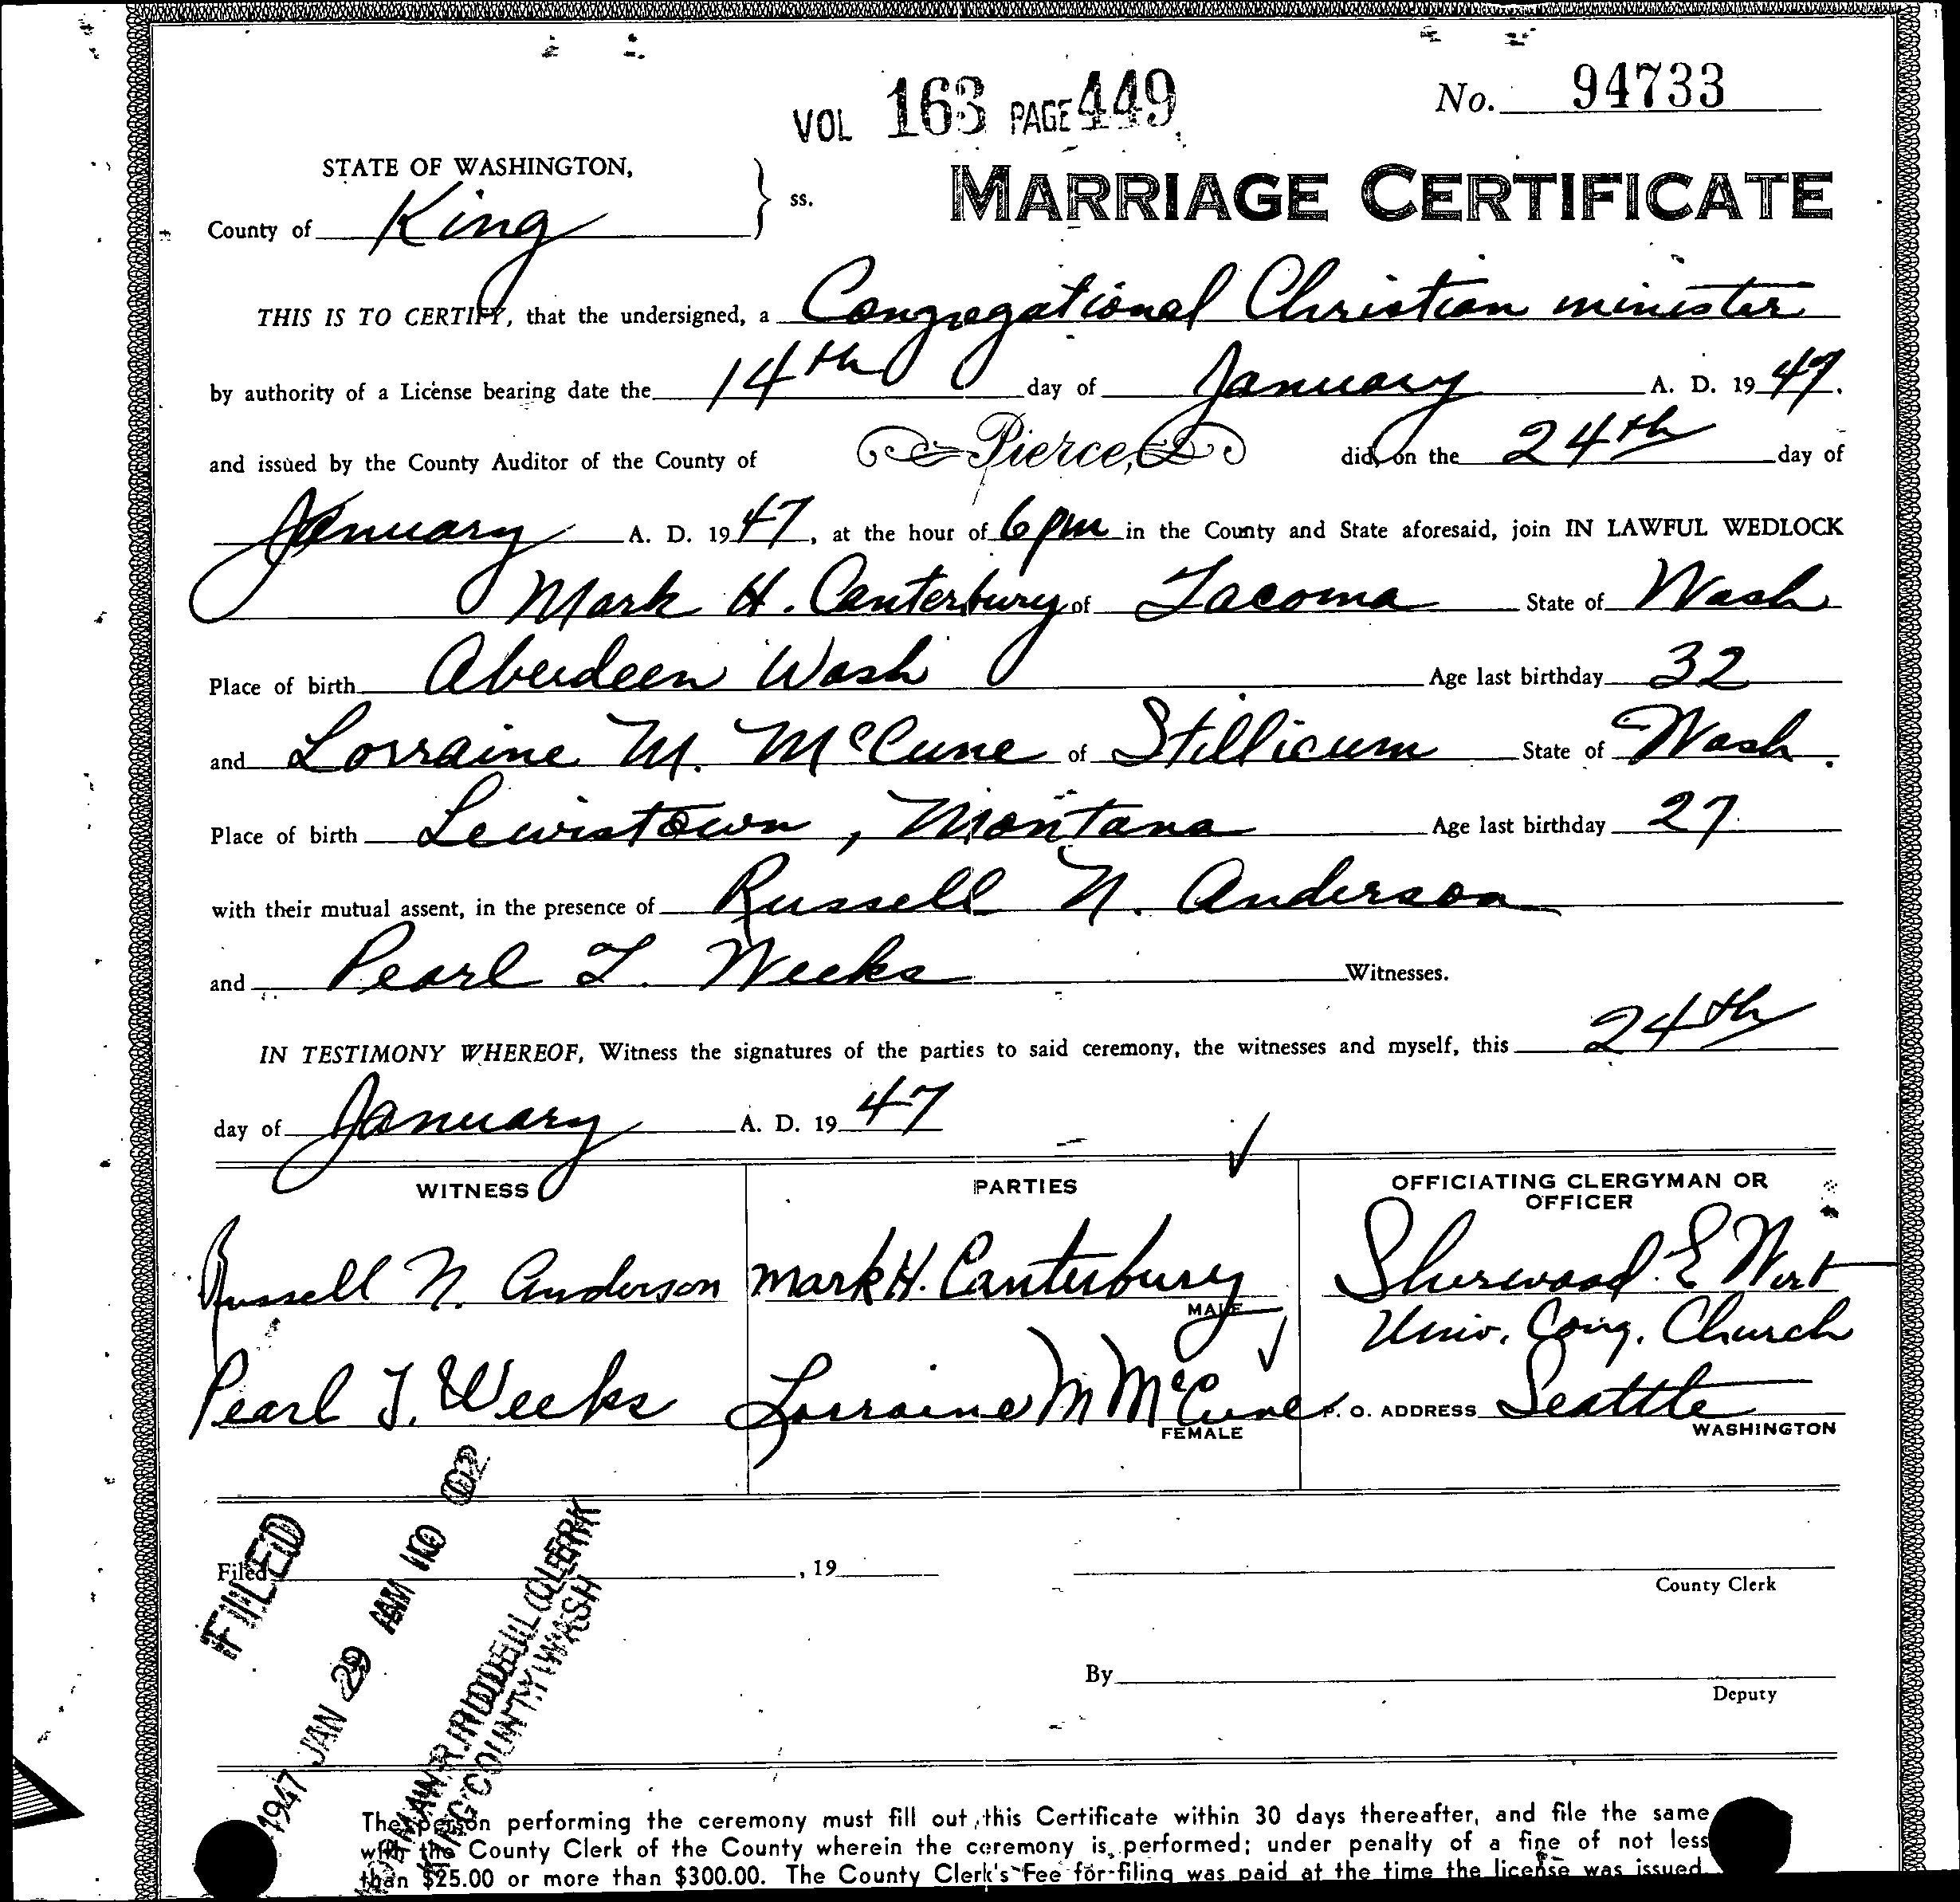 VOL 163 PAGE 449
No. 94733
STATE OF WASHINGTON,
County of King } ss.
MARRIAGE CERTIFICATE
THIS IS TO CERTIFY, that the undersigned, a Congregational Christian minister
by authority of a License bearing date the 14th day of January A. D. 1947.
and issued by the County Auditor of the County of Pierce, did, on the 24th day of
January A. D. 1947, at the hour of 6 pm in the County and State aforesaid, join IN LAWFUL WEDLOCK
Mark H. Canterbury of Tacoma State of Wash
Place of birth Aberdeen Wash Age last birthday 32
and Lorraine M. McCune of Stillicum State of Wash.
Place of birth Lewistown, Montana Age last birthday 27
with their mutual assent, in the presence of Russell N. Anderson
and Pearl T. Weeks Witnesses.
IN TESTIMONY WHEREOF, Witness the signatures of the parties to said ceremony, the witnesses and myself, this 24th
day of January A. D. 1947
WITNESS
PARTIES
OFFICIATING CLERGYMAN OR
OFFICER
Russell N. Anderson
Mark H. Canterbury
MALE
Sherwood E Wirt
Univ. Cong. Church
Pearl T. Weeks
Lorraine M McCune
FEMALE
P. O. ADDRESS Seattle
WASHINGTON
Filed , 19
County Clerk
By
Deputy
FILED
1947 JAN 29 AM 10 02
NORMAN R. RIDDELL CLERK
KING COUNTY WASH
The person performing the ceremony must fill out this Certificate within 30 days thereafter, and file the same
with the County Clerk of the County wherein the ceremony is performed; under penalty of a fine of not less
than $25.00 or more than $300.00. The County Clerk's Fee for filing was paid at the time the license was issued.